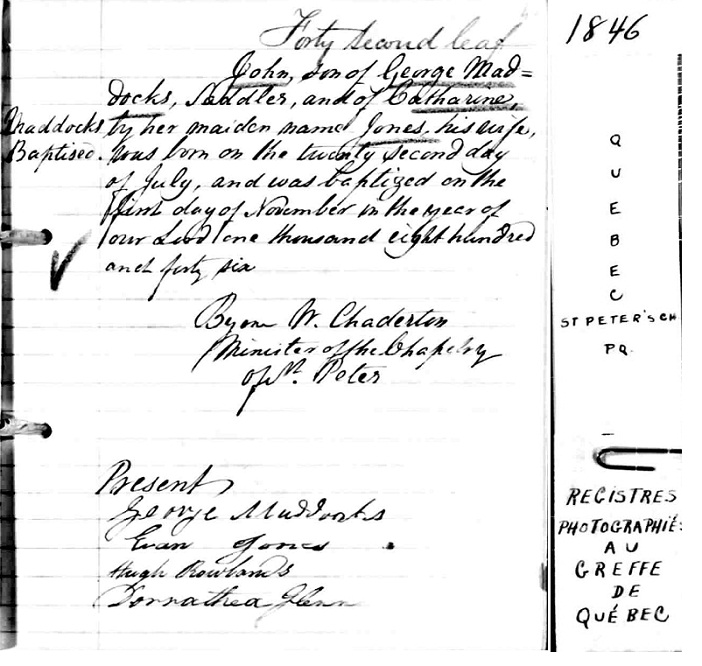 Forty second leaf
John, son of George Mad=
docks, Saddler, and of Catharine,
by her maiden name Jones, his wife,
was born on the twenty second day
of July, and was baptized on the
first day of November in the year of
our Lord one thousand eight hundred
and forty six
Maddocks
Baptised.
By me W. Chaderton
Minister of the Chapelry
of St. Peter
Present
George Maddocks
Evan Jones
Hugh Rowlands
Dorrathea Glenn
1846
QUEBEC
ST PETER'S CH
PQ.
REGISTRES
PHOTOGRAPHIÉS
AU
GREFFE
DE
QUÉBEC